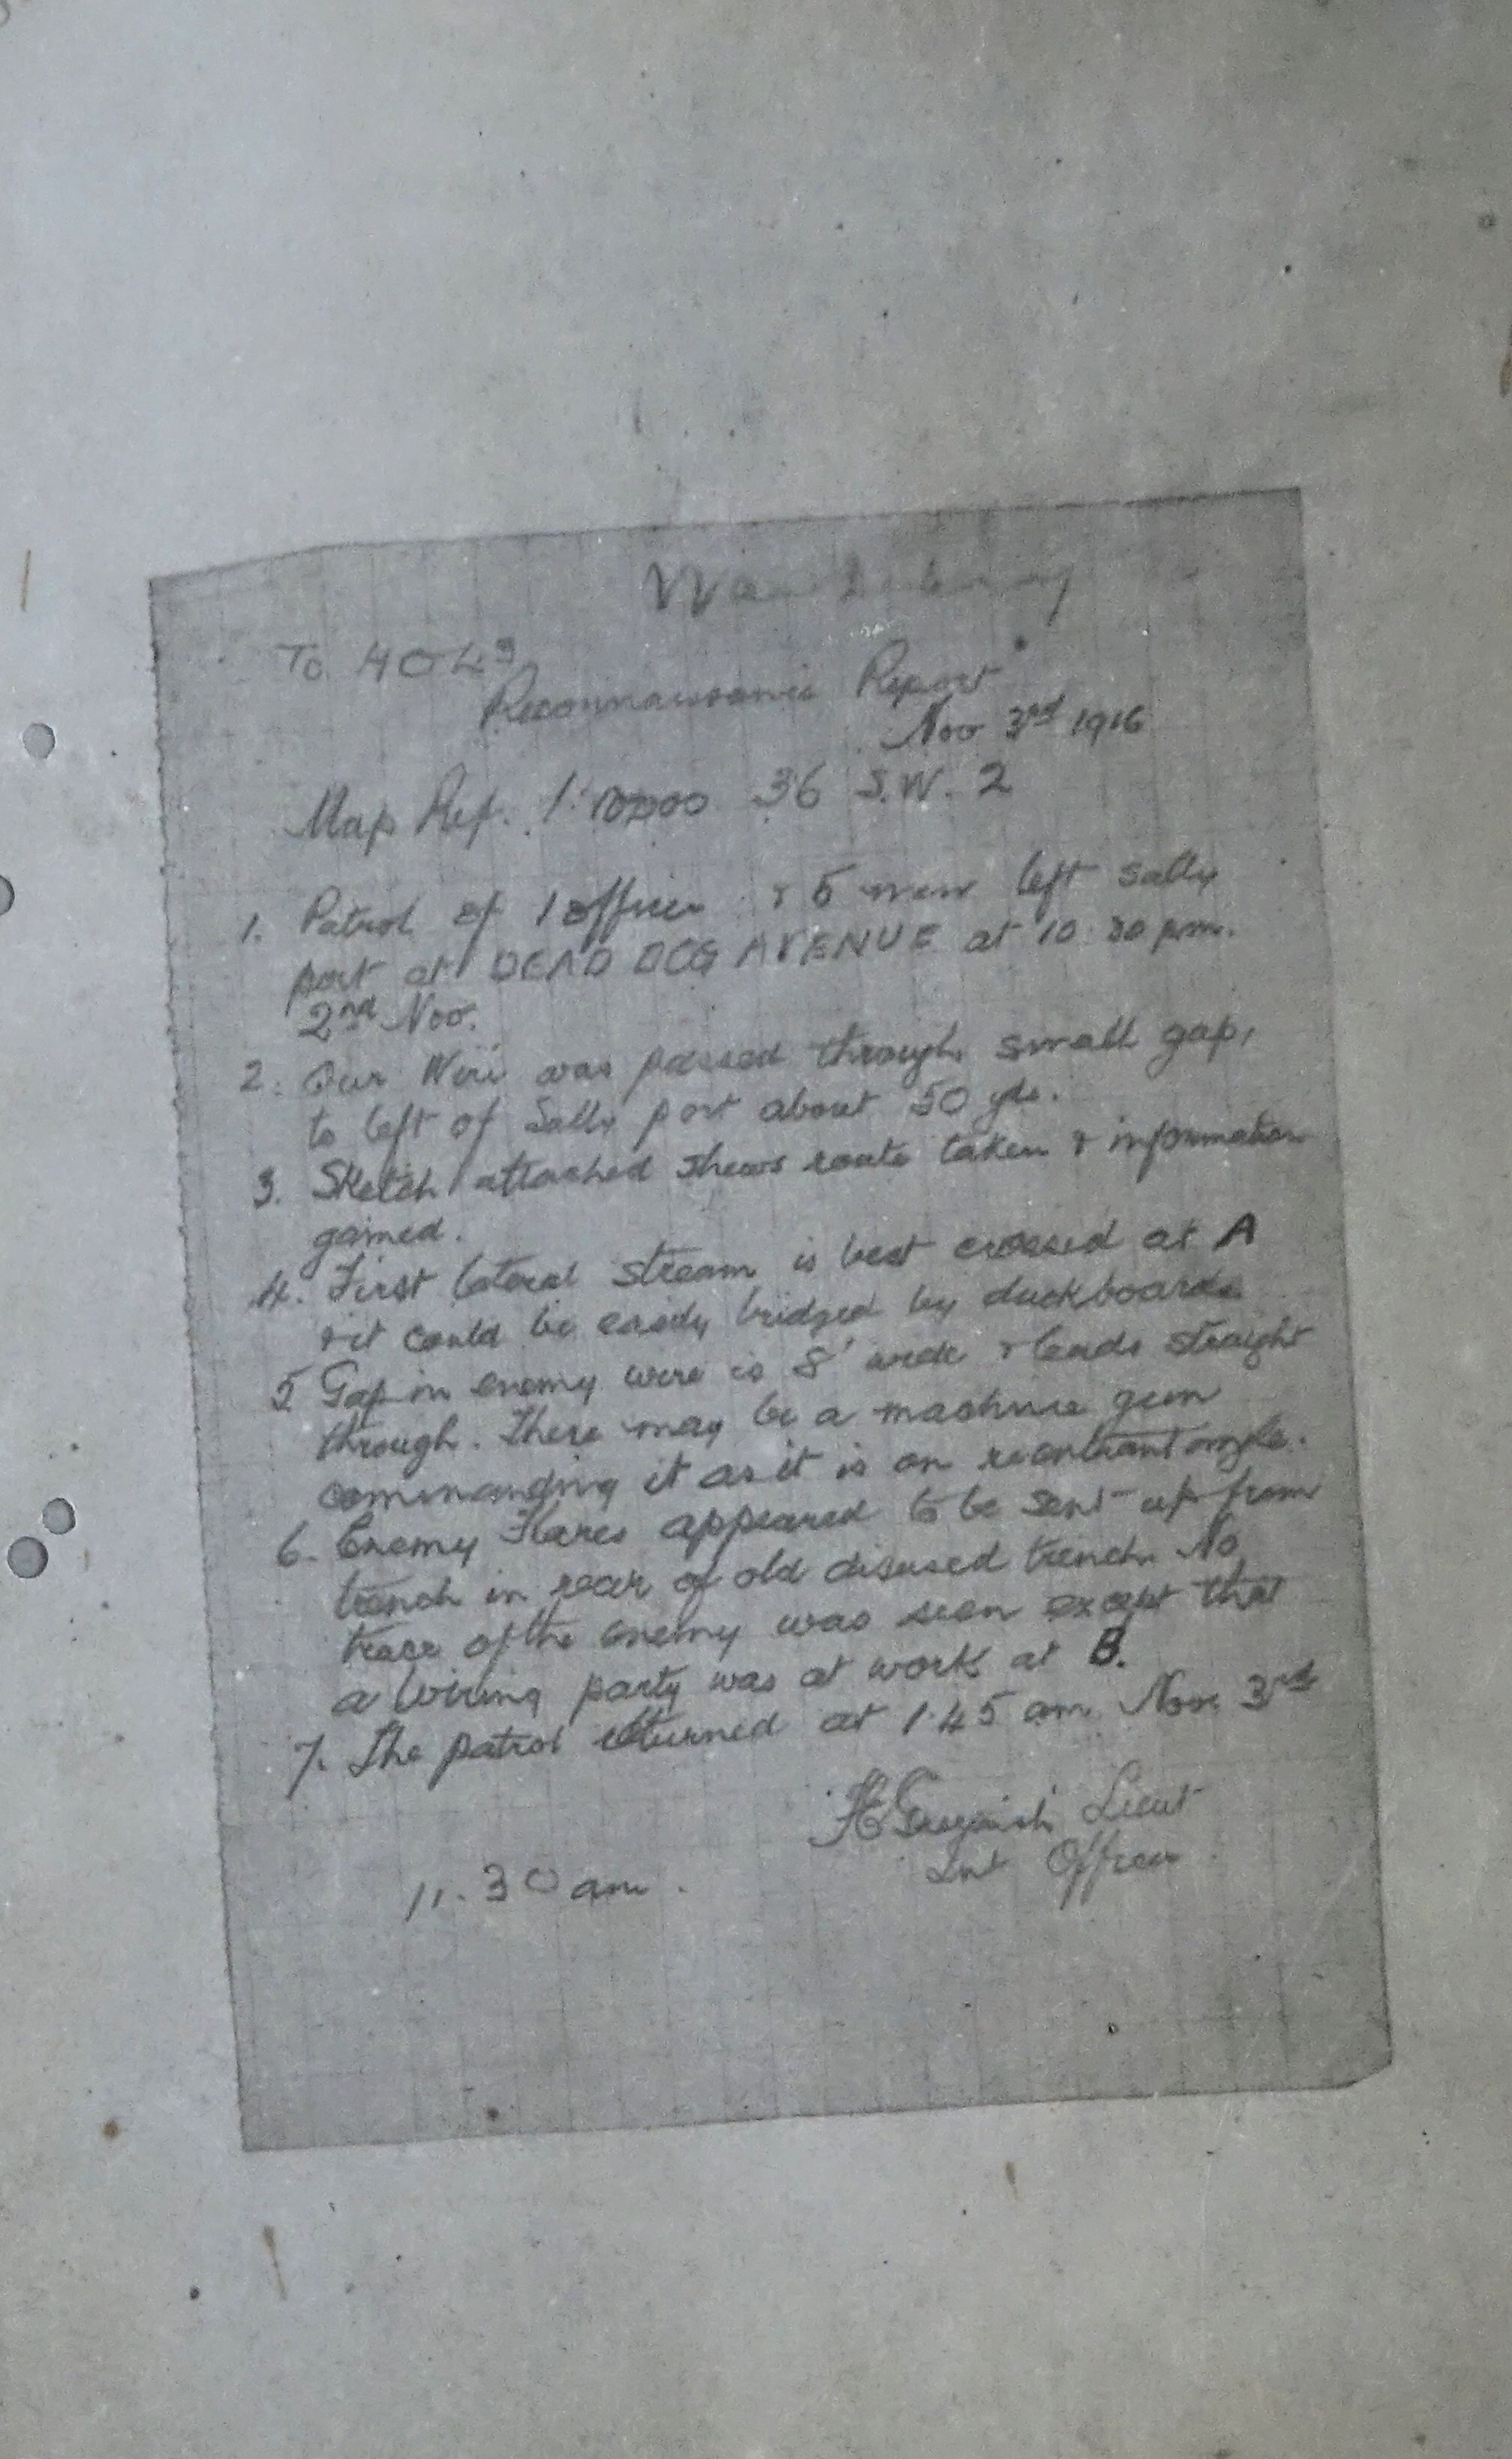 War Diary
To 4049
Reconnaissance Report
Nov 3rd 1916
Map Ref. 1:10000 36 S.W. 2
1. Patrol of 1 officer & 5 men left sally
port at DEAD DOG AVENUE at 10 30 pm.
2nd Nov.
2. Our Wire was passed through small gap,
to left of Sally port about 50 yds.
3. Sketch attached shews route taken & information
gained.
4. First lateral stream is best crossed at A
& it could be easily bridged by duckboards
5. Gap in enemy wire is 8' wide & leads straight
through. There may be a machine gun
commanding it as it is on reentrant angle.
6. Enemy Flares appeared to be sent up from
trench in rear of old disused trench. No
trace of the enemy was seen except that
a wiring party was at work at B.
7. The patrol returned at 1.45 am Nov. 3rd
Lieut
Int Officer
11.30 am.